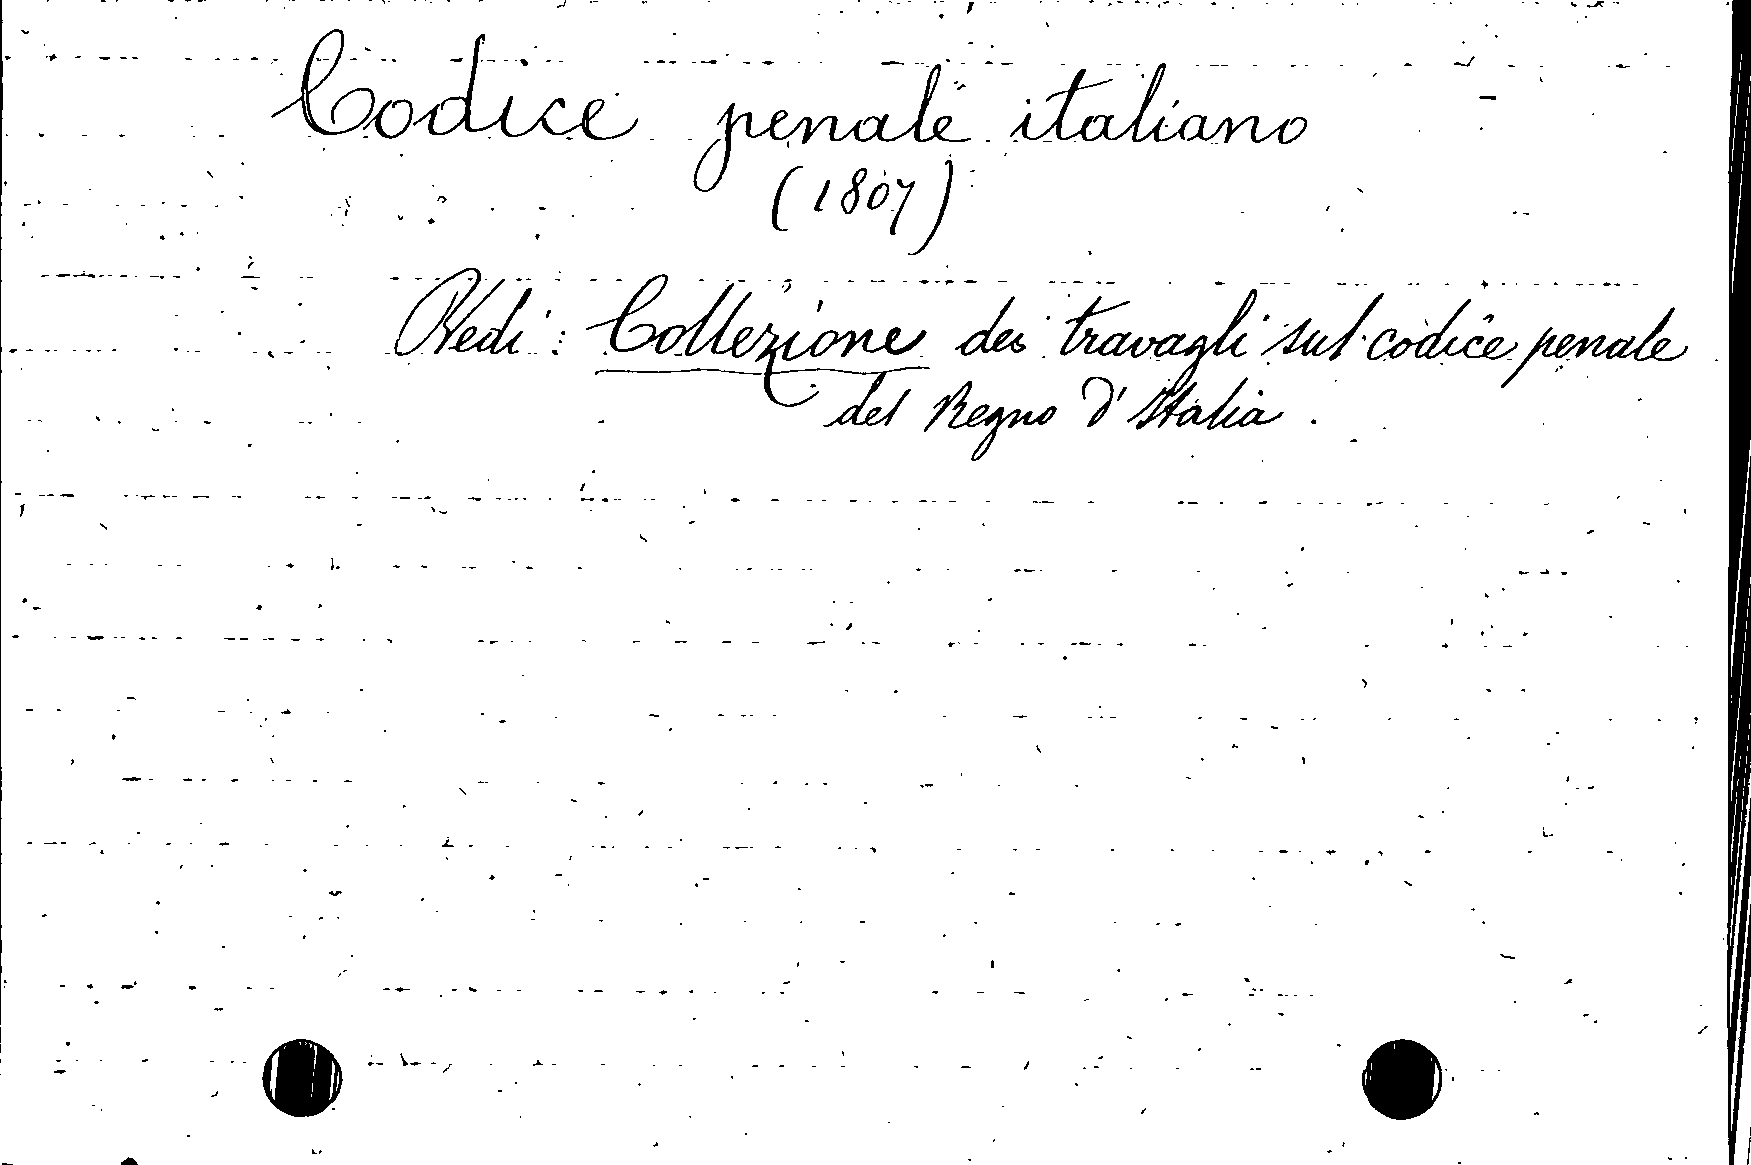 Codice penale italiano
(1807)
Vedi: Collezione dei travagli sul codice penale
del Regno d'Italia.